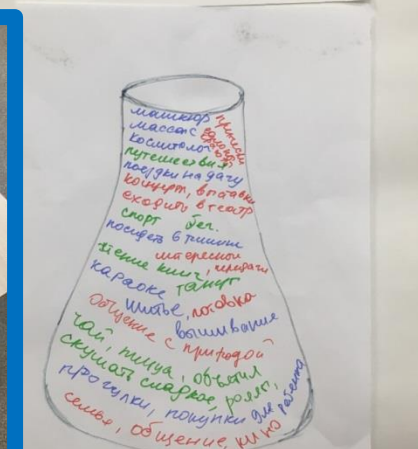 маникюр
массаж
косметолог
путешествия
поездки на дачу
концерт, выставки
сходить в театр
спорт бег.
посидеть в тишине
интересной
чтение книг, передачи
караоке танцы
шитье, готовка
вышивание
общение с природой
чай, пицца, объятия
скушать сладкое, роллы,
прогулки, покупки для ребенка
семья, общение, кино